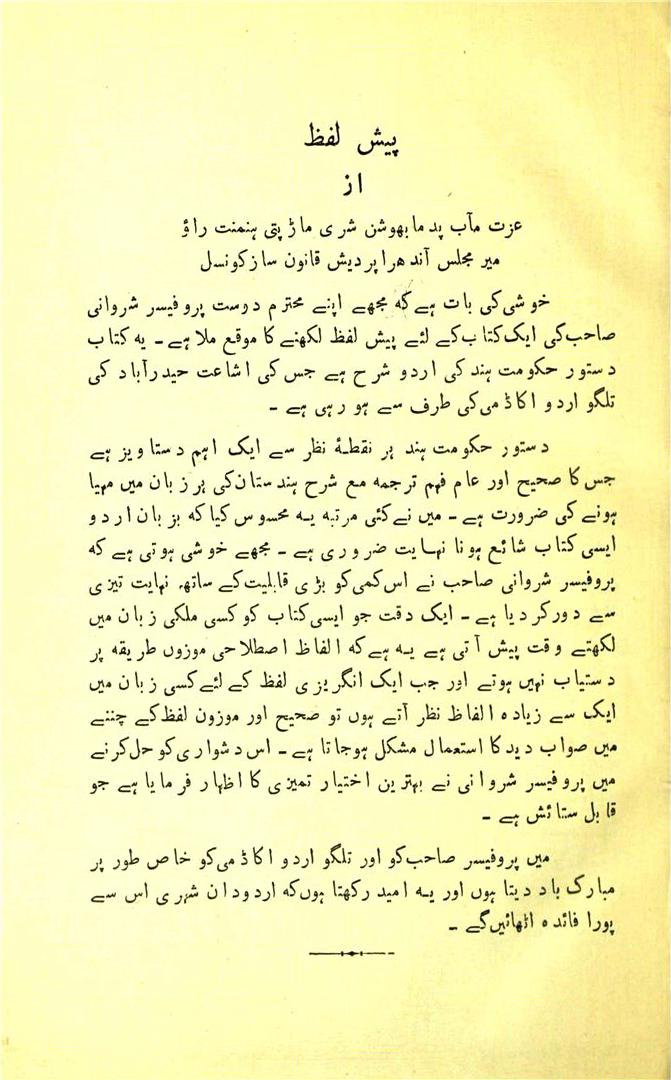 پیش لفظ
از
عزت مآب پدما بھوشن شری ماڑپتی ہنمنت راؤ
میر مجلس آندھرا پردیش قانون ساز کونسل
خوشی کی بات ہے کہ مجھے اپنے محترم دوست پروفیسر شروانی
صاحب کی ایک کتاب کے لئے پیش لفظ لکھنے کا موقع ملا ہے ۔ یہ کتاب
دستور حکومت ہند کی اردو شرح ہے جس کی اشاعت حیدرآباد کی
تلگو اردو اکاڈمی کی طرف سے ہو رہی ہے ۔
دستور حکومت ہند ہر نقطۂ نظر سے ایک اہم دستاویز ہے
جس کا صحیح اور عام فہم ترجمہ مع شرح ہندستان کی ہر زبان میں مہیا
ہونے کی ضرورت ہے ۔ میں نے کئی مرتبہ یہ محسوس کیا کہ بزبان اردو
ایسی کتاب شائع ہونا نہایت ضروری ہے ۔ مجھے خوشی ہوتی ہے کہ
پروفیسر شروانی صاحب نے اس کمی کو بڑی قابلیت کے ساتھ نہایت تیزی
سے دور کر دیا ہے ۔ ایک دقت جو ایسی کتاب کو کسی ملکی زبان میں
لکھتے وقت پیش آتی ہے یہ ہے کہ الفاظ اصطلاحی موزوں طریقہ پر
دستیاب نہیں ہوتے اور جب ایک انگریزی لفظ کے لئے کسی زبان میں
ایک سے زیادہ الفاظ نظر آتے ہوں تو صحیح اور موزون لفظ کے چننے
میں صواب دید کا استعمال مشکل ہوجاتا ہے ۔ اس دشواری کو حل کرنے
میں پروفیسر شروانی نے بہترین اختیار تمیزی کا اظہار فرمایا ہے جو
قابل ستائش ہے ۔
میں پروفیسر صاحب کو اور تلگو اردو اکاڈمی کو خاص طور پر
مبارک باد دیتا ہوں اور یہ امید رکھتا ہوں کہ اردودان شہری اس سے
پورا فائدہ اٹھائیں گے ۔